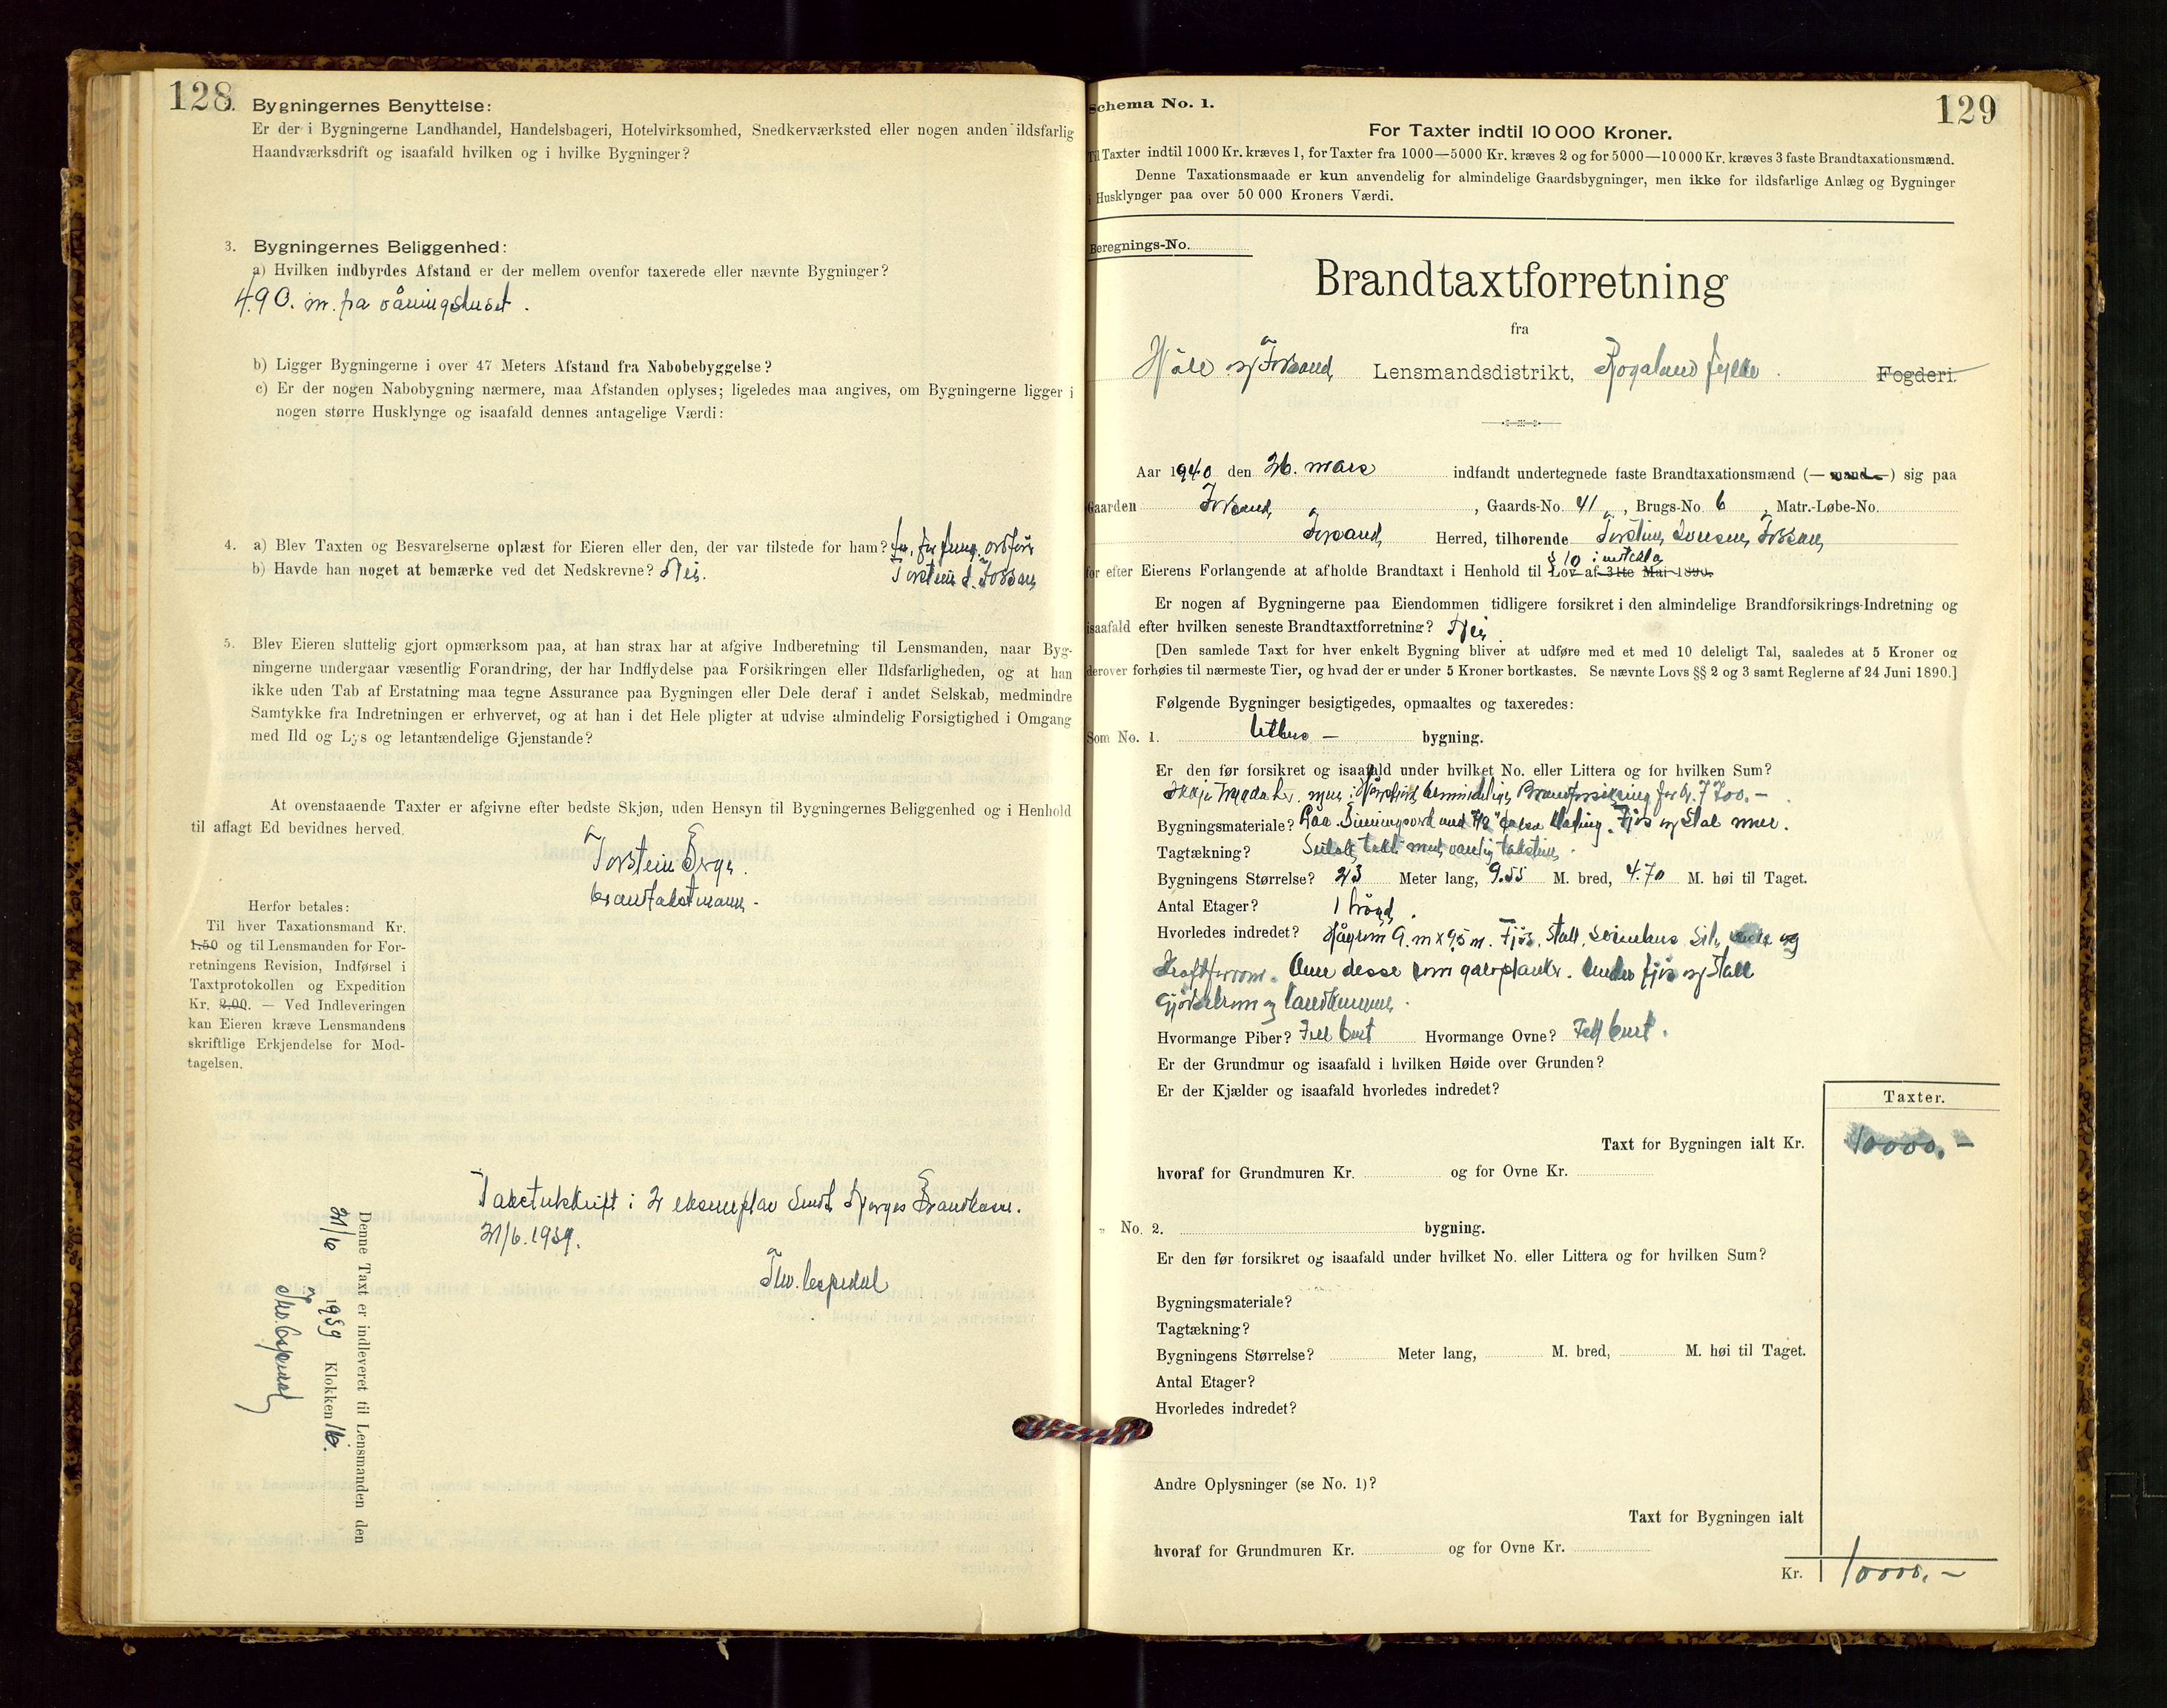 128
Bygningernes Benyttelse:
Er der i Bygningerne Landhandel, Handelsbageri, Hotelvirksomhed, Snedkerværksted eller nogen anden ildsfarlig
Haandværksdrift og isaafald hvilken og i hvilke Bygninger?
3. Bygningernes Beliggenhed:
a) Hvilken indbyrdes Afstand er der mellem ovenfor taxerede eller nævnte Bygninger?
4.90. m. fra våningshuset.
b) Ligger Bygningerne i over 47 Meters Afstand fra Nabobebyggelse?
c) Er der nogen Nabobygning nærmere, maa Afstanden oplyses; ligeledes maa angives, om Bygningerne ligger i
nogen større Husklynge og isaafald dennes antagelige Værdi:
4. a) Blev Taxten og Besvarelserne oplæst for Eieren eller den, der var tilstede for ham? Ja, for fung. ordfører
b) Havde han noget at bemærke ved det Nedskrevne? Nei. Torstein S. Fossan
5. Blev Eieren sluttelig gjort opmærksom paa, at han strax har at afgive Indberetning til Lensmanden, naar Byg-
ningerne undergaar væsentlig Forandring, der har Indflydelse paa Forsikringen eller Ildsfarligheden, og at han
ikke uden Tab af Erstatning maa tegne Assurance paa Bygningen eller Dele deraf i andet Selskab, medmindre
Samtykke fra Indretningen er erhvervet, og at han i det Hele pligter at udvise almindelig Forsigtighed i Omgang
med Ild og Lys og letantændelige Gjenstande?
At ovenstaaende Taxter er afgivne efter bedste Skjøn, uden Hensyn til Bygningernes Beliggenhed og i Henhold
til aflagt Ed bevidnes herved.
Torstein Berge.
brandtakstmann.
Herfor betales:
Til hver Taxationsmand Kr.
1.50 og til Lensmanden for For-
retningens Revision, Indførsel i
Taxtprotokollen og Expedition
Kr. 2.00. — Ved Indleveringen
kan Eieren kræve Lensmandens
skriftlige Erkjendelse for Mod-
tagelsen.
Takstutskrift i 2 eksemplar sendt Norges Brandkasse.
21/6.1939.
Thv. Espedal
Denne Taxt er indleveret til Lensmanden den
21/6 1939 Klokken 16.
Thv. Espedal
Schema No. 1.
129
For Taxter indtil 10 000 Kroner.
Til Taxter indtil 1000 Kr. kræves 1, for Taxter fra 1000—5000 Kr. kræves 2 og for 5000—10 000 Kr. kræves 3 faste Brandtaxationsmænd.
Denne Taxationsmaade er kun anvendelig for almindelige Gaardsbygninger, men ikke for ildsfarlige Anlæg og Bygninger
i Husklynger paa over 50 000 Kroners Værdi.
Beregnings-No.
Brandtaxtforretning
fra
Høle og Forsand Lensmandsdistrikt, Rogaland fylke. Fogderi.
Aar 1940 den 26. mars indfandt undertegnede faste Brandtaxationsmænd (— mand —) sig paa
Gaarden Fossan, Gaards-No. 41, Brugs-No. 6, Matr.-Løbe-No.
Forsand Herred, tilhørende Torstein Fossan
§ 10 i
for efter Eierens Forlangende at afholde Brandtaxt i Henhold til Lov af 31te Mai 1890.
Er nogen af Bygningerne paa Eiendommen tidligere forsikret i den almindelige Brandforsikrings-Indretning og
isaafald efter hvilken seneste Brandtaxtforretning? Nei.
[Den samlede Taxt for hver enkelt Bygning bliver at udføre med et med 10 deleligt Tal, saaledes at 5 Kroner og
derover forhøies til nærmeste Tier, og hvad der er under 5 Kroner bortkastes. Se nævnte Lovs §§ 2 og 3 samt Reglerne af 24 Juni 1890.]
Følgende Bygninger besigtigedes, opmaaltes og taxeredes:
Som No. 1. Uthus — bygning.
Er den før forsikret og isaafald under hvilket No. eller Littera og for hvilken Sum?
Brandforsikring for kr. 7700.-
Bygningsmateriale? kledning. Fjøs og Stal mur.
Tagtækning? tekt med vanlig takstein
Bygningens Størrelse? 23 Meter lang, 9.55 M. bred, 4.70 M. høi til Taget.
Antal Etager? 1
Hvorledes indredet? 9. m x 9,5 m. Fjøs, Stall, Svinehus, og
Over desse rom. Under fjøs og Stall
og landkummer.
Hvormange Piber? Fell burt Hvormange Ovne? Fell burt.
Er der Grundmur og isaafald i hvilken Høide over Grunden?
Er der Kjælder og isaafald hvorledes indredet?
Taxter.
Taxt for Bygningen ialt Kr. 10000.-
hvoraf for Grundmuren Kr. og for Ovne Kr.
„ No. 2. bygning.
Er den før forsikret og isaafald under hvilket No. eller Littera og for hvilken Sum?
Bygningsmateriale?
Tagtækning?
Bygningens Størrelse? Meter lang, M. bred, M. høi til Taget.
Antal Etager?
Hvorledes indredet?
Andre Oplysninger (se No. 1)?
Taxt for Bygningen ialt
hvoraf for Grundmuren Kr. og for Ovne Kr.
Kr. 10000.-